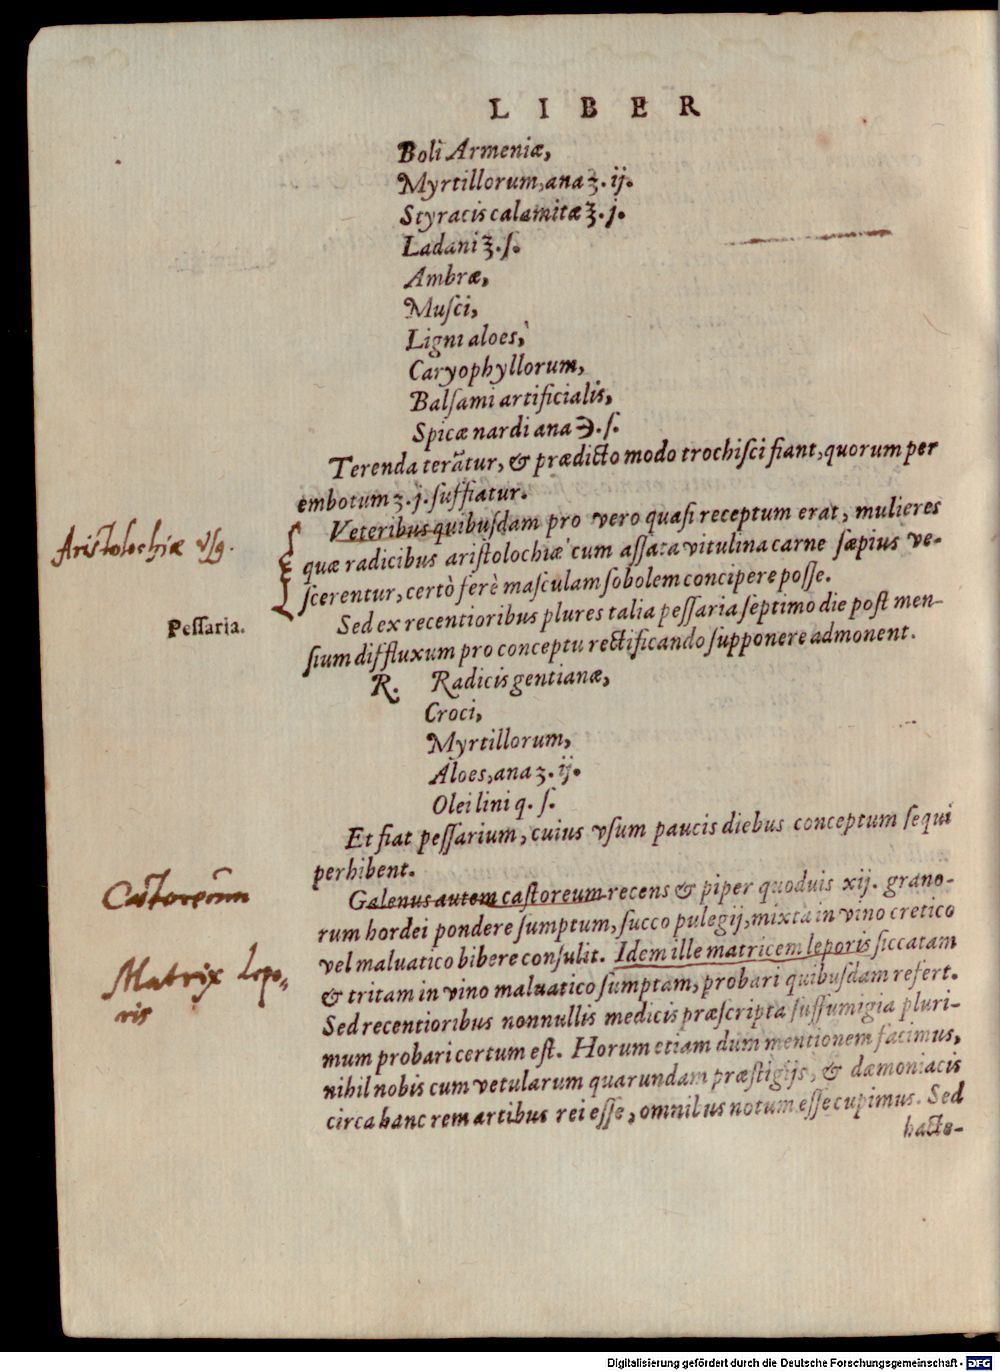 LIBER
Boli Armeniæ,
Myrtillorum, ana ʒ. ij.
Styracis calamitæ ʒ. j.
Ladani ʒ. ſ.
Ambræ,
Muſci,
Ligni aloes,
Caryophyllorum,
Balſami artificialis,
Spicæ nardi ana ℈. ſ.
Terenda terātur, & prædicto modo trochiſci fiant, quorum per
embotum ʒ. j. ſuffiatur.
Aristolochiæ vſ9.
Veteribus quibuſdam pro vero quaſi receptum erat, mulieres
quæ radicibus ariſtolochiæ cum aſſata vitulina carne ſæpius ve-
ſcerentur, certò ferè maſculam ſobolem concipere poſſe.
Peſſaria.
Sed ex recentioribus plures talia peſſaria ſeptimo die poſt men-
ſium diffluxum pro conceptu rectificando ſupponere admonent.
R. Radicis gentianæ,
Croci,
Myrtillorum,
Aloes, ana ʒ. ij.
Olei lini q. ſ.
Et fiat peſſarium, cuius vſum paucis diebus conceptum ſequi
perhibent.
Castoreum
Galenus autem caſtoreum recens & piper quoduis xij. grano-
rum hordei pondere ſumptum, ſucco pulegij, mixta in vino cretico
vel maluatico bibere conſulit. Idem ille matricem leporis ſiccatam
Matrix Lepo-
ris
& tritam in vino maluatico ſumptam, probari quibuſdam refert.
Sed recentioribus nonnullis medicis præſcripta ſuffumigia pluri-
mum probari certum eſt. Horum etiam dum mentionem facimus,
nihil nobis cum vetularum quarundam præſtigijs, & dæmoniacis
circa hanc rem artibus rei eſſe, omnibus notum eſſe cupimus. Sed
hacte-
Digitalisierung gefördert durch die Deutsche Forschungsgemeinschaft - DFG